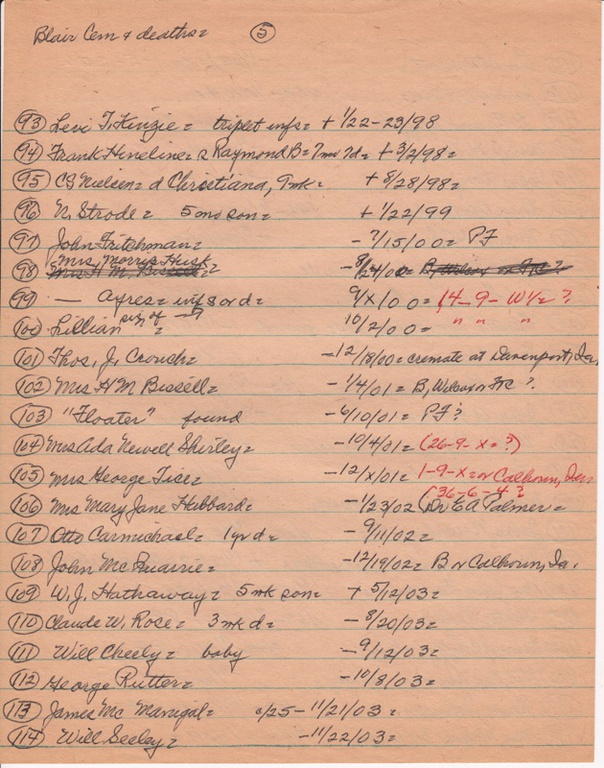 Blair Cem & deaths= (5)
(93) Levi T. Kinzie = triplet infs = + 1/22-23/98
(94) Frank Hineline = s Raymond B = 7mo 7d = + 3/2/98 =
(95) CS Nielsen = d Christiana, 9mk = + 8/28/98 =
(96) N. Strode = 5 mo son = + 1/22/99
(97) John Fritchman = - 7/15/00 = PF
Mrs. Morris Husk
(98) Mrs H M Bissell = - 8/24/00 = B, Wilcox or FR ?
(99) — Ayres = inf s or d = 9/X/00 = (4-9-W½ = ?
(100) Lillian = 10/2/00 = " " "
(101) Thos. J. Crouch = - 12/18/00 = cremate at Davenport, Ia.
(102) Mrs H M Bissell = - 1/4/01 = B, Wilcox or FR ?
(103) "Floater" found - 6/10/01 = PF ?
(104) Mrs Ada Newell Shirley = - 10/4/01 = (26-9-X = ?)
(105) Mrs George Tise = - 12/X/01 = 1-9-X = or Calhoun, Ia
(36-6-4 ?
(106) Mrs Mary Jane Hubbard = - 1/23/02 (Dr EA Palmer =
(107) Otto Carmichael = 1 yr d = - 9/11/02 =
(108) John McQuarrie = - 12/19/02 = B or Calhoun, Ia.
(109) W. J. Hathaway = 5 mk son = + 5/12/03 =
(110) Claude W. Rose = 3 mk d = - 8/20/03 =
(111) Will Cheely = baby - 9/12/03 =
(112) George Rutter = - 10/8/03 =
(113) James Mc Manigal = c/25 - 11/21/03 =
(114) Will Seeley = - 11/22/03 =